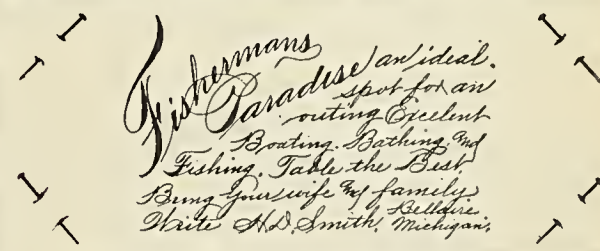 Fishermans
Paradise an ideal
spot for an
outing Excelent
Boating. Bathing. and
Fishing. Table the Best.
Bring your wife and family
Write H.D. Smith. Bellaire.
Michigan.